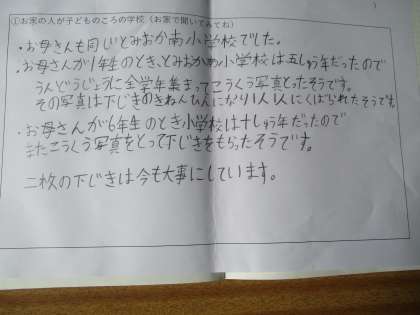 ①お家の人が子どものころの学校（お家で聞いてみてね）
・お母さんも同じとみおか南小学校でした。
・お母さんが1年生のとき、とみおか南小学校は五しゅう年だったので
うんどうじょうに全学年集まってこうくう写真とったそうです。
その写真は下じきのきねんひんになり1人1人にくばられたそうです。
・お母さんが6年生のとき小学校は十しゅう年だったので
またこうくう写真をとって下じきをもらったそうです。
二枚の下じきは今も大事にしています。